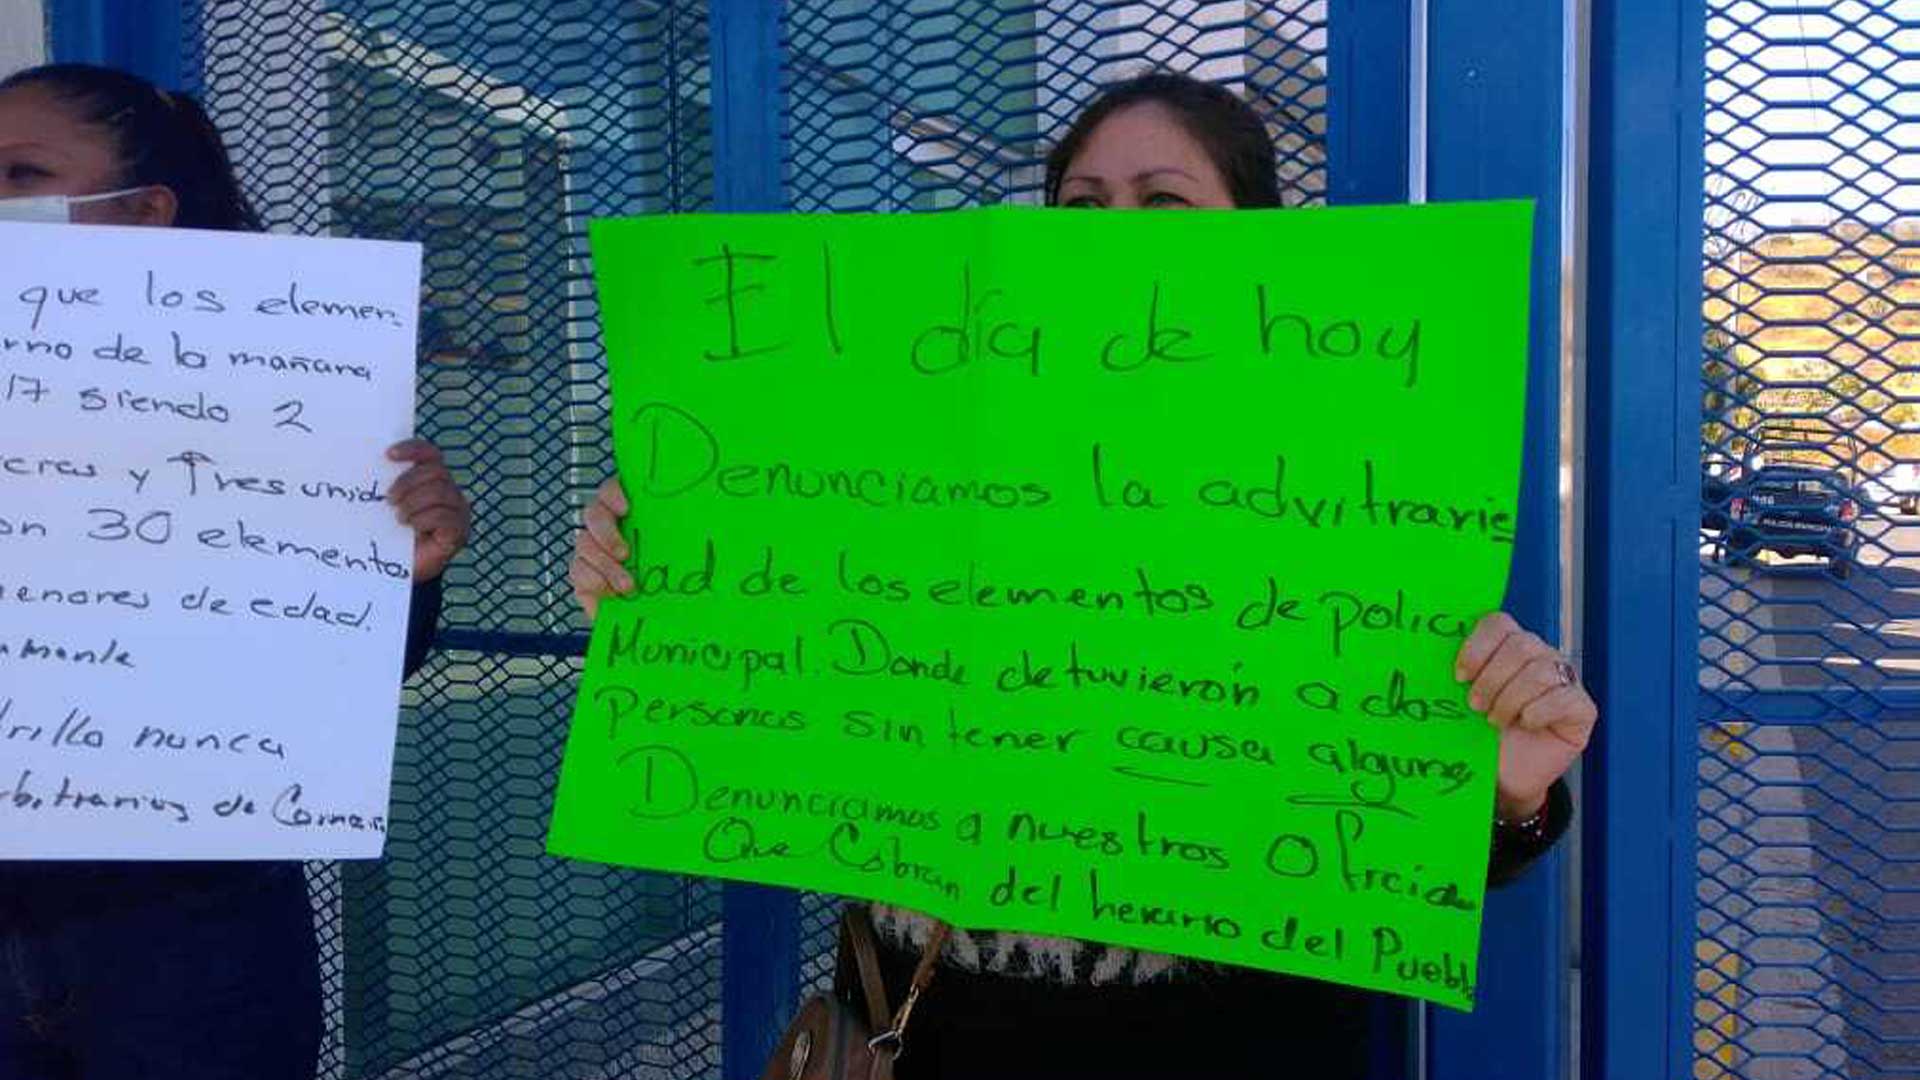 que los elemen-
rno de la mañana
17 siendo 2
y Tres unid
on 30 elementos
enores de edad.
amente
nunca
de
El día de hoy
Denunciamos la advitrarie
dad de los elementos de polici
Municipal. Donde detuvierón a dos
personas sin tener causa alguna
Denunciamos a nuestros Oficia
Que Cobran del herario del Pueblo